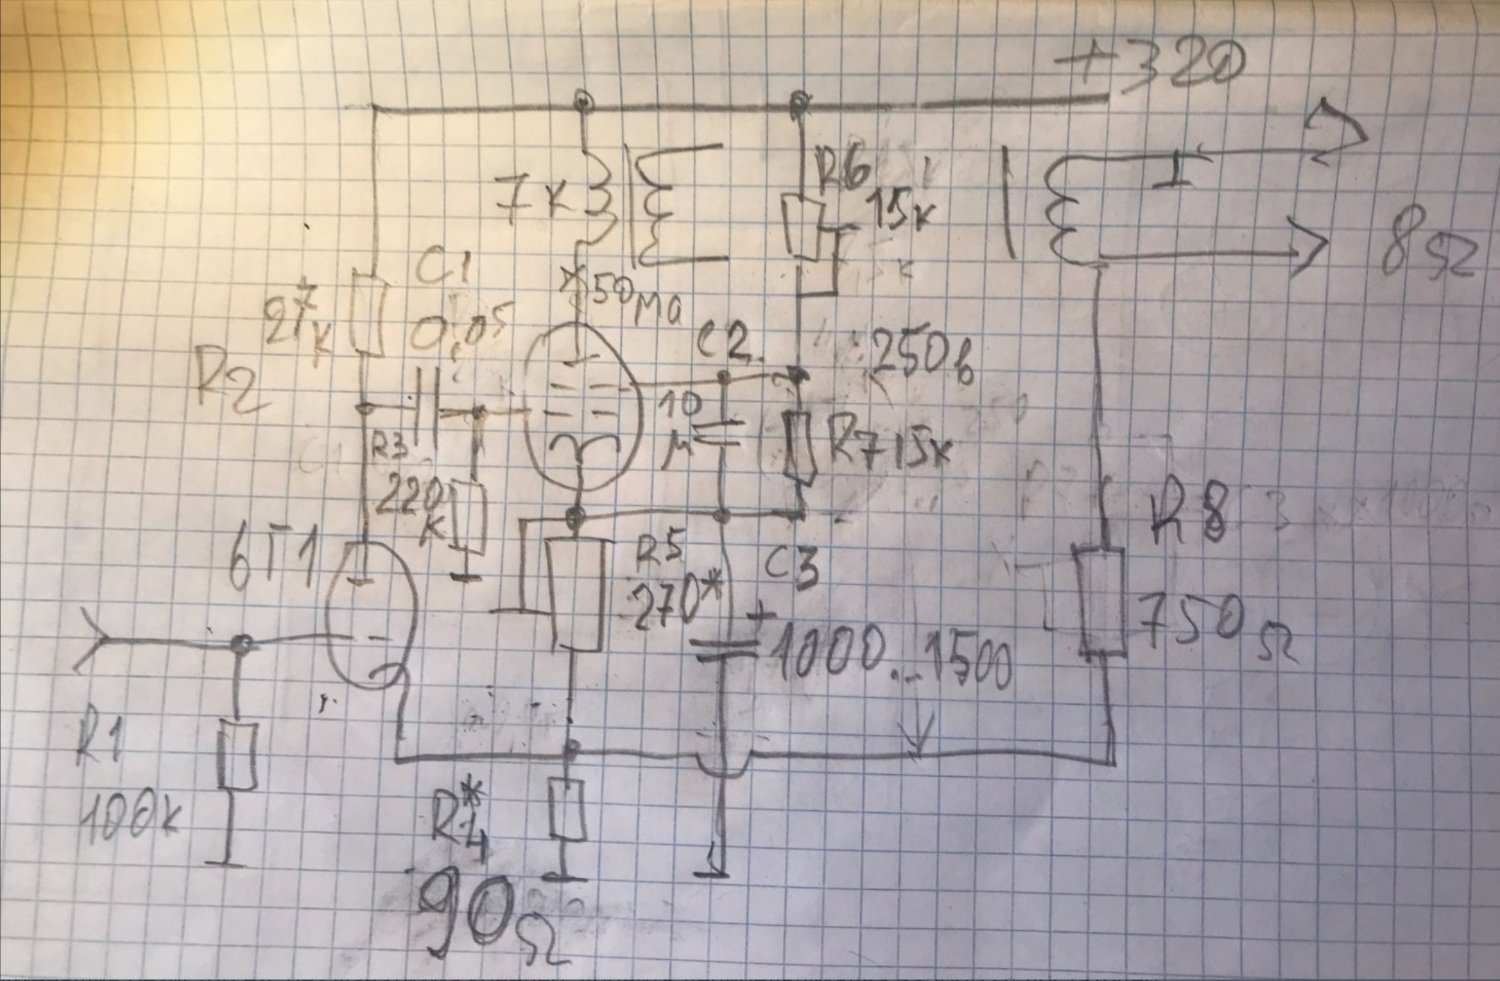 +320
R6
15к
7к
8Ω
С1
27к
0,05
50ма
R2
С2
250в
10
м
R3
220
к
R7 15к
R8
6Г1
R5
270*
С3
+
1000...1500
750Ω
R1
100к
R4*
90Ω